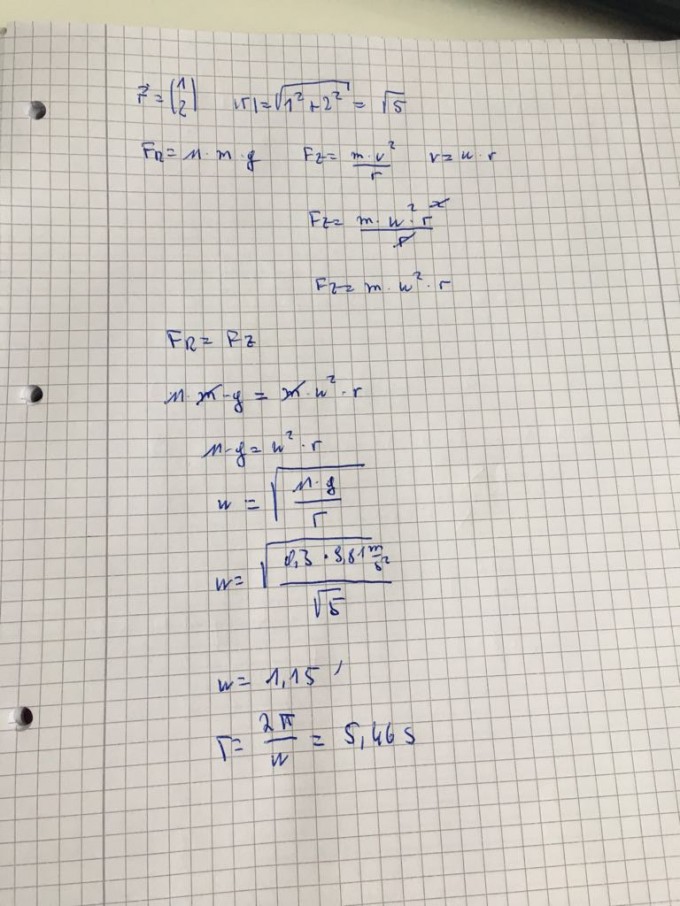 r⃗ = (1 2) |r| = √(1² + 2²) = √5
F_R = μ · m · g F_Z = m · v² / r v = ω · r
F_Z = m · ω² · r² / r
F_Z = m · ω² · r
F_R = F_Z
μ · m · g = m · ω² · r
μ · g = ω² · r
ω = √(μ · g / r)
ω = √(0,3 · 9,81 m/s² / √5)
ω = 1,15
T = 2π / ω = 5,46 s